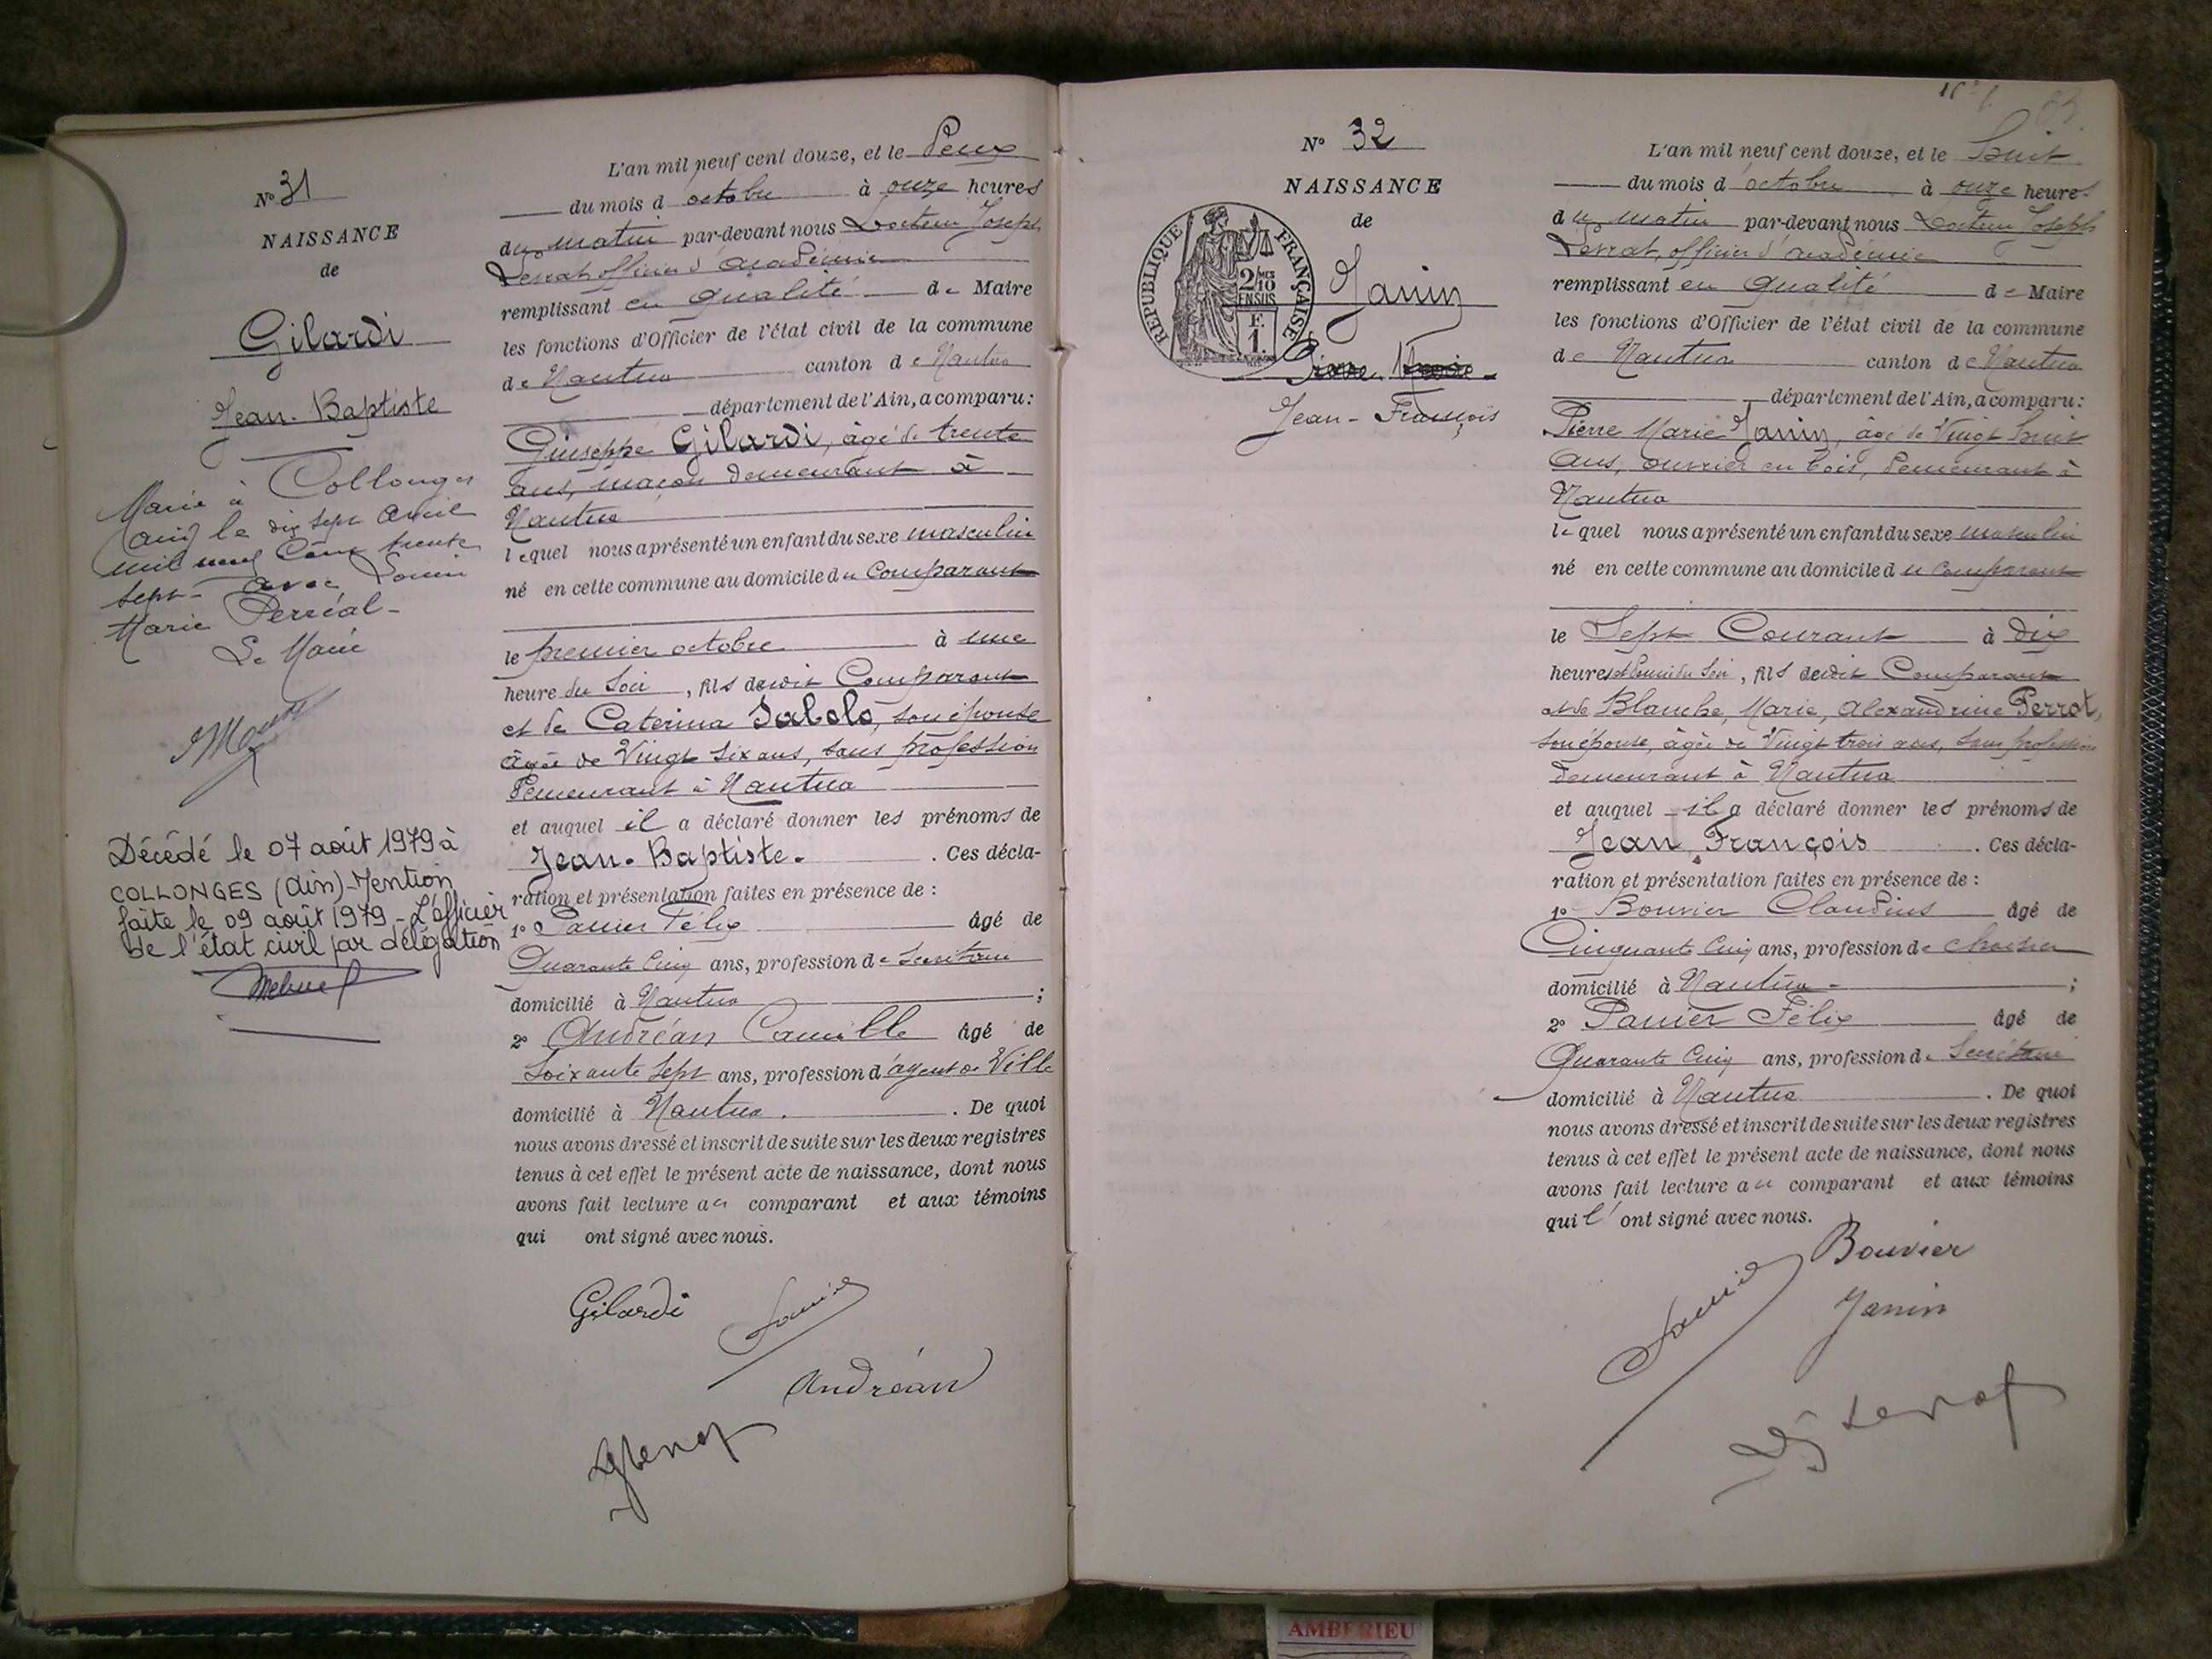 N° 31
NAISSANCE
de
Gilardi
Jean-Baptiste
Marié à Collonges
(Ain) le dix sept avril
mil neuf cent trente
sept - avec Louise
Marie Perréal -
Le Maire
Décédé le 07 août 1979 à
COLLONGES (Ain) - Mention
faite le 09 août 1979 - L'officier
de l'état civil par délégation
L'an mil neuf cent douze, et le Deux
du mois d'octobre à onze heures
du matin par-devant nous Docteur Joseph
Levrat, officier d'académie
remplissant en qualité de Maire
les fonctions d'Officier de l'état civil de la commune
de Nantua canton de Nantua
département de l'Ain, a comparu :
Giuseppe Gilardi, âgé de trente
ans, maçon demeurant à
Nantua
lequel nous a présenté un enfant du sexe masculin
né en cette commune au domicile du comparant
le premier octobre à une
heure du soir, fils dudit Comparant
et de Caterina Sabolo, son épouse
âgée de Vingt six ans, sans profession
demeurant à Nantua
et auquel il a déclaré donner les prénoms de
Jean-Baptiste. . Ces décla-
ration et présentation faites en présence de :
1° Panier Félix âgé de
Quarante Cinq ans, profession de Secrétaire
domicilié à Nantua ;
2° Andréan Camille âgé de
Soixante Sept ans, profession d'agent de Ville
domicilié à Nantua. . De quoi
nous avons dressé et inscrit de suite sur les deux registres
tenus à cet effet le présent acte de naissance, dont nous
avons fait lecture au comparant et aux témoins
qui ont signé avec nous.
Gilardi
Panier
Andréan
N° 32
NAISSANCE
de
RÉPUBLIQUE FRANÇAISE
2/10 MES
EN SUS
F.
1.
Janin
Pierre Marie
Jean-François
L'an mil neuf cent douze, et le huit
du mois d'octobre à onze heures
du matin par-devant nous Docteur Joseph
Levrat, officier d'académie
remplissant en qualité de Maire
les fonctions d'Officier de l'état civil de la commune
de Nantua canton de Nantua
département de l'Ain, a comparu :
Pierre Marie Janin, âgé de Vingt huit
ans, ouvrier en bois, demeurant à
Nantua
lequel nous a présenté un enfant du sexe masculin
né en cette commune au domicile du comparant
le Sept Courant à dix
heures et demie du soir, fils dudit Comparant
et de Blanche, Marie, Alexandrine Perrot,
son épouse, âgée de Vingt trois ans, sans profession
demeurant à Nantua
et auquel il a déclaré donner les prénoms de
Jean, François . Ces décla-
ration et présentation faites en présence de :
1° Bouvier Claudius âgé de
Cinquante Cinq ans, profession de
domicilié à Nantua - ;
2° Panier Félix âgé de
Quarante Cinq ans, profession de Secrétaire
domicilié à Nantua . De quoi
nous avons dressé et inscrit de suite sur les deux registres
tenus à cet effet le présent acte de naissance, dont nous
avons fait lecture au comparant et aux témoins
qui l'ont signé avec nous.
Bouvier
Panier
Janin
Levrat
AMBERIEU